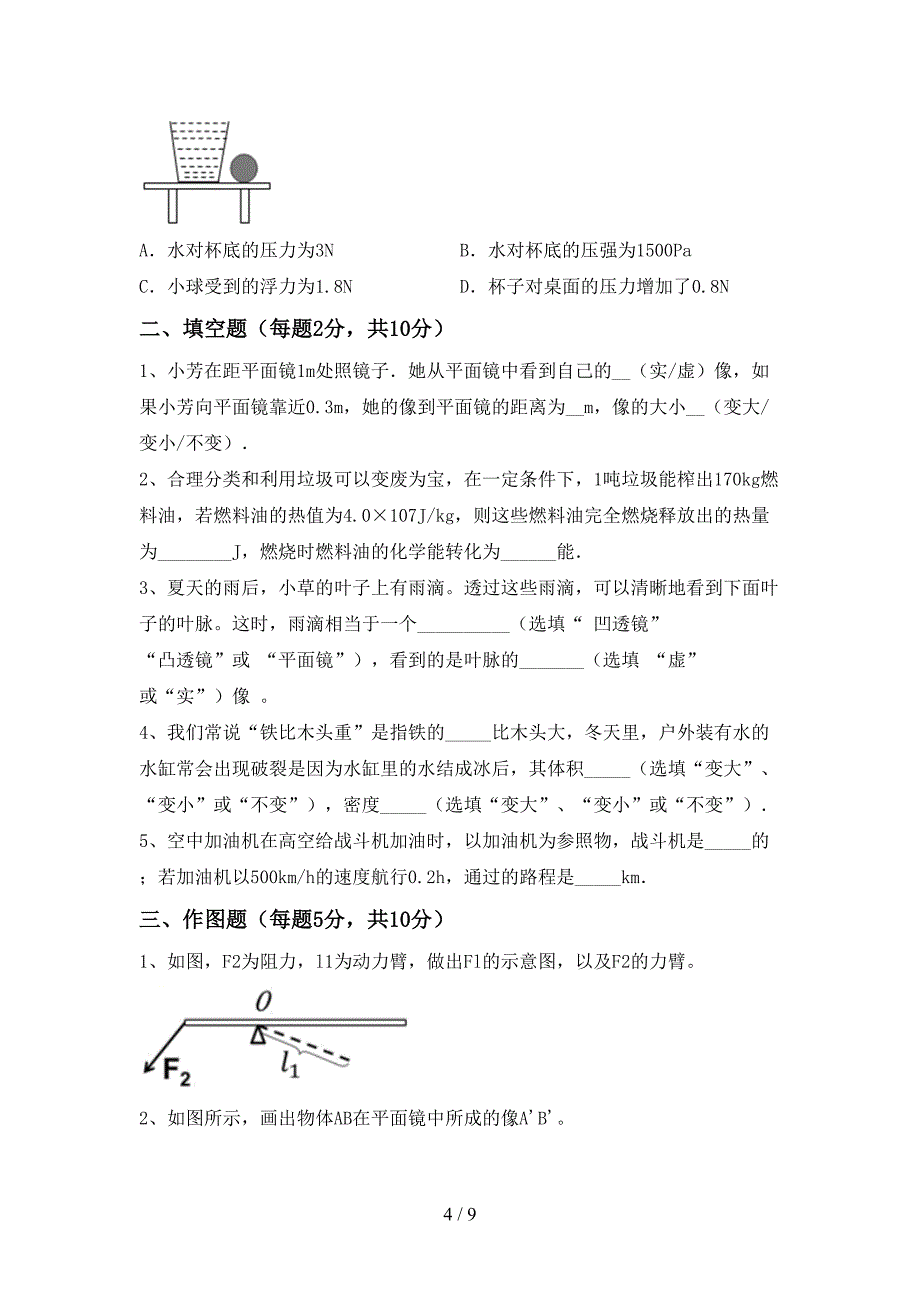 A．水对杯底的压力为3N B．水对杯底的压强为1500Pa
C．小球受到的浮力为1.8N D．杯子对桌面的压力增加了0.8N
二、填空题（每题2分，共10分）
1、小芳在距平面镜1m处照镜子．她从平面镜中看到自己的__（实/虚）像，如
果小芳向平面镜靠近0.3m，她的像到平面镜的距离为__m，像的大小__（变大/
变小/不变）．
2、合理分类和利用垃圾可以变废为宝，在一定条件下，1吨垃圾能榨出170kg燃
料油，若燃料油的热值为4.0×107J/kg，则这些燃料油完全燃烧释放出的热量
为________J，燃烧时燃料油的化学能转化为______能．
3、夏天的雨后，小草的叶子上有雨滴。透过这些雨滴，可以清晰地看到下面叶
子的叶脉。这时，雨滴相当于一个__________（选填“ 凹透镜”
“凸透镜”或 “平面镜”），看到的是叶脉的_______（选填 “虚”
或“实”）像 。
4、我们常说“铁比木头重”是指铁的_____比木头大，冬天里，户外装有水的
水缸常会出现破裂是因为水缸里的水结成冰后，其体积_____（选填“变大”、
“变小”或“不变”），密度_____（选填“变大”、“变小”或“不变”）．
5、空中加油机在高空给战斗机加油时，以加油机为参照物，战斗机是_____的
；若加油机以500km/h的速度航行0.2h，通过的路程是_____km．
三、作图题（每题5分，共10分）
1、如图，F2为阻力，l1为动力臂，做出Fl的示意图，以及F2的力臂。
O
F2
l1
2、如图所示，画出物体AB在平面镜中所成的像A'B'。
4 / 9